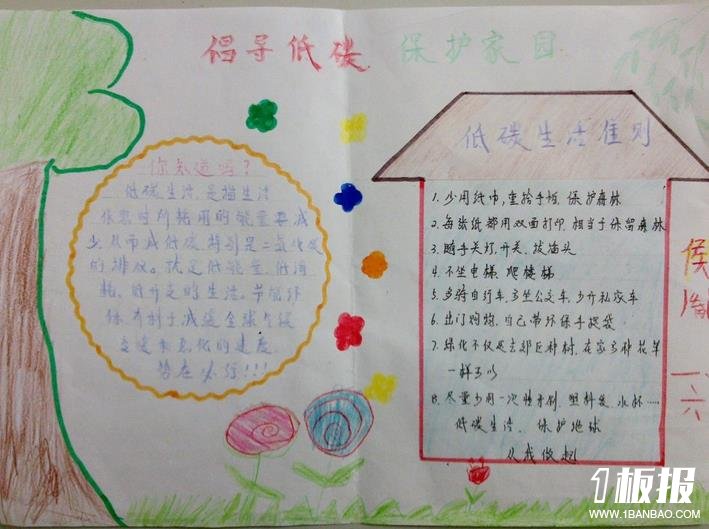 倡导低碳 保护家园
你知道吗?
低碳生活,是指生活
作息时所耗用的能量要减
少,从而减低碳,特别是二氧化碳
的排放。就是低能量、低消
耗、低开支的生活。节能环
保,有利于减缓全球气候
变暖和恶化的速度,
势在必行!!!
低碳生活准则
1. 少用纸巾,重拾手帕,保护森林
2. 每张纸都用双面打印,相当于保留森林
3. 随手关灯、开关、拔插头
4. 不坐电梯 爬楼梯
5. 多骑自行车,多坐公交车,少开私家车
6. 出门购物,自己带环保手提袋
7. 绿化不仅是去郊区种树,在家多种花草
一样可以
8. 尽量少用一次性牙刷、塑料袋、水杯……
低碳生活、保护地球
从我做起
一
六
1板报
WWW.1BANBAO.COM